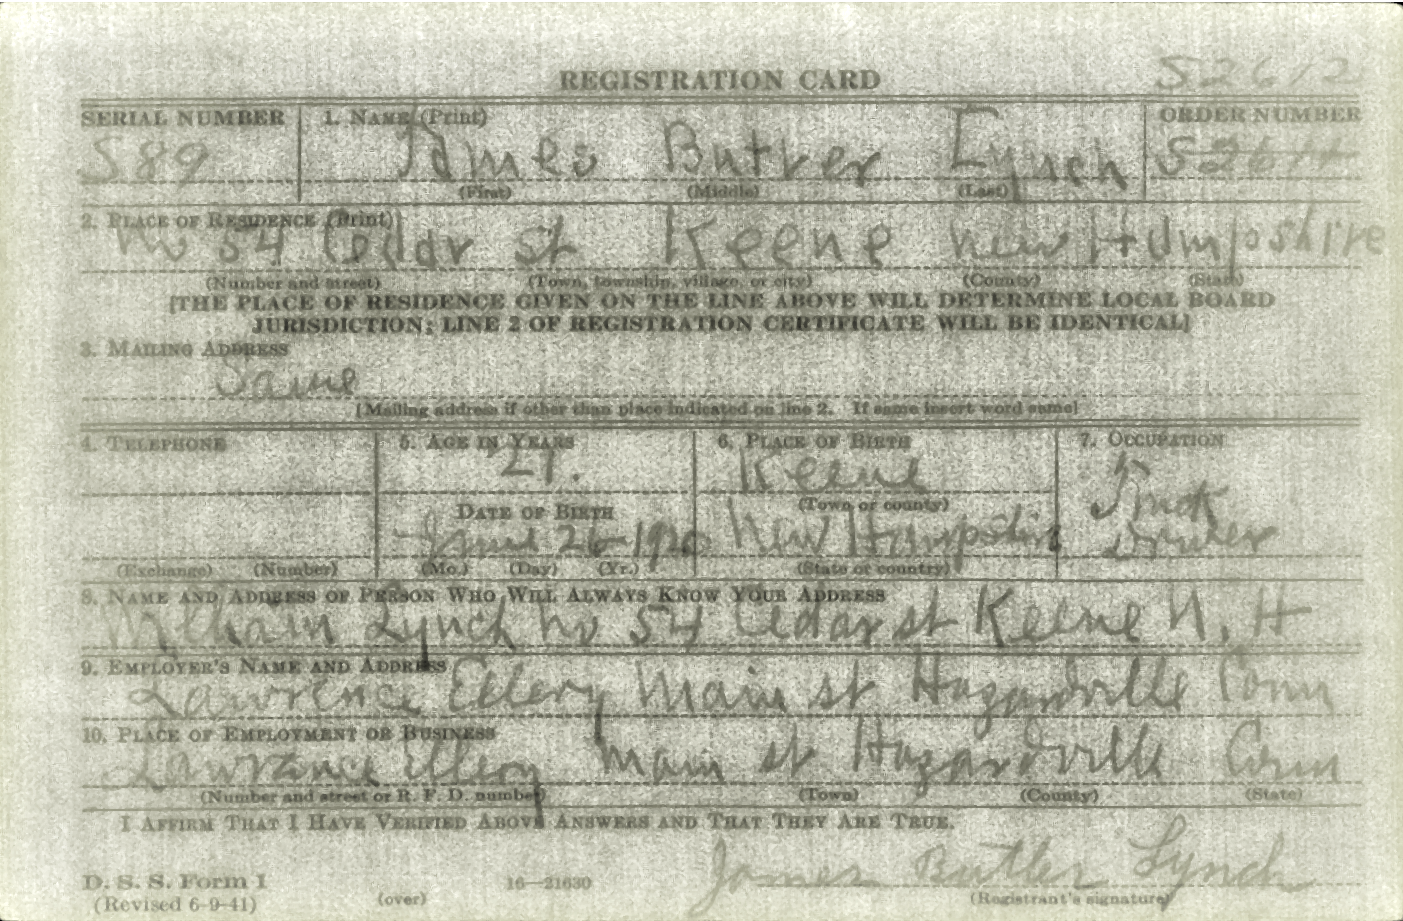 REGISTRATION CARD
52612
SERIAL NUMBER 1. NAME (Print) ORDER NUMBER
S89 James Butler Lynch
(First) (Middle) (Last)
2. PLACE OF RESIDENCE (Print)
No 54 Cedar st Keene New Hampshire
(Number and street) (Town, township, village, or city) (County) (State)
[THE PLACE OF RESIDENCE GIVEN ON THE LINE ABOVE WILL DETERMINE LOCAL BOARD
JURISDICTION; LINE 2 OF REGISTRATION CERTIFICATE WILL BE IDENTICAL]
3. MAILING ADDRESS
Same
[Mailing address if other than place indicated on line 2. If same insert word same]
4. TELEPHONE 5. AGE IN YEARS 6. PLACE OF BIRTH 7. OCCUPATION
21. Keene Truck
DATE OF BIRTH (Town or county)
June 26 1920 New Hampshire Driver
(Exchange) (Number) (Mo.) (Day) (Yr.) (State or country)
8. NAME AND ADDRESS OF PERSON WHO WILL ALWAYS KNOW YOUR ADDRESS
William Lynch No 54 Cedar st Keene N. H
9. EMPLOYER'S NAME AND ADDRESS
Lawrence Ellery Main st Hazardville Conn
10. PLACE OF EMPLOYMENT OR BUSINESS
Lawrence Ellery Main st Hazardville Conn
(Number and street or R. F. D. number) (Town) (County) (State)
I AFFIRM THAT I HAVE VERIFIED ABOVE ANSWERS AND THAT THEY ARE TRUE.
James Butler Lynch
D. S. S. Form 1 16—21630 (Registrant's signature)
(Revised 6-9-41) (over)